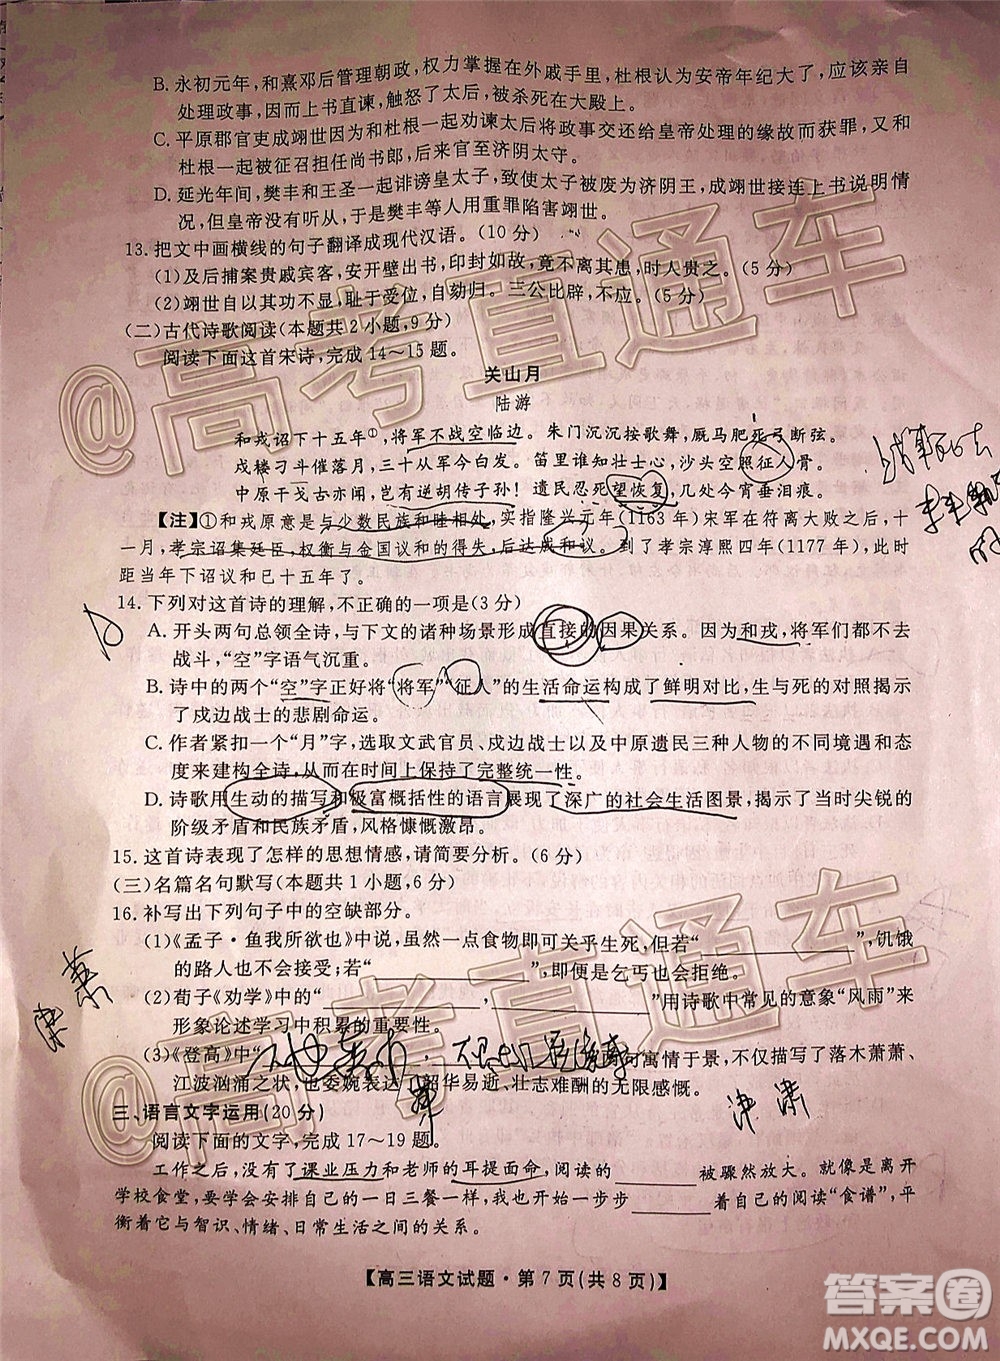 B. 永初元年,和熹邓后管理朝政,权力掌握在外戚手里,杜根认为安帝年纪大了,应该亲自
处理政事,因而上书直谏,触怒了太后,被杀死在大殿上。
C. 平原郡官吏成翊世因为和杜根一起劝谏太后将政事交还给皇帝处理的缘故而获罪,又和
杜根一起被征召担任尚书郎,后来升迁至济阴太守。
D. 延光年间,樊丰和王圣一起诽谤皇太子,致使太子被废为济阴王,成翊世接连上书说明情
况,但皇帝没有听从,于是樊丰等人用重罪陷害翊世。
13. 把文中画横线的句子翻译成现代汉语。(10 分)
(1)及后捕案贵戚宾客,安开壁出书,印封如故,竟不离其患,时人贵之。(5 分)
(2)翊世自以其功不显,耻于受位,自劾归。三公比辟,不应。(5 分)
(二)古代诗歌阅读(本题共 2 小题,9 分)
阅读下面这首宋诗,完成 14～15 题。
关山月
陆游
和戎诏下十五年①,将军不战空临边。朱门沉沉按歌舞,厩马肥死弓断弦。
戍楼刁斗催落月,三十从军今白发。笛里谁知壮士心,沙头空照征人骨。
中原干戈古亦闻,岂有逆胡传子孙!遗民忍死望恢复,几处今宵垂泪痕。
【注】①和戎原意是与少数民族和睦相处,实指隆兴元年(1163 年)宋军在符离大败之后,十
一月,孝宗诏集廷臣,权衡与金国议和的得失,后达成和议。到了孝宗淳熙四年(1177 年),此时
距当年下诏议和已十五年了。
14. 下列对这首诗的理解,不正确的一项是(3 分)
A. 开头两句总领全诗,与下文的诸种场景形成直接的因果关系。因为和戎,将军们都不去
战斗,“空”字语气沉重。
B. 诗中的两个“空”字正好将“将军”“征人”的生活命运构成了鲜明对比,生与死的对照写出
了戍边战士的悲剧命运。
C. 作者紧扣一个“月”字,选取文武官员、戍边战士以及中原遗民三种人物的不同境遇和态
度来建构全诗,从而在时间上保持了完整统一性。
D. 诗歌用生动的描写和极富概括性的语言展现了深广的社会生活图景,揭示了当时尖锐的
阶级矛盾和民族矛盾,风格慷慨激昂。
15. 这首诗表现了怎样的思想情感,请简要分析。(6 分)
(三)名篇名句默写(本题共 1 小题,6 分)
16. 补写出下列句子中的空缺部分。
(1)《孟子·鱼我所欲也》中说,虽然一点食物即可关乎生死,但若“____________”,饥饿
的路人也不会接受;若“____________”,即便是乞丐也会拒绝。
(2)荀子《劝学》中的“____________,____________”用诗歌中常见的意象“风雨”来
形象论述学习中积累的重要性。
(3)《登高》中“____________,____________”两句寓情于景,不仅描写了落木萧萧、
江波汹涌之状,也委婉表达了韶华易逝、壮志难酬的无限感慨。
三、语言文字运用(20 分)
阅读下面的文字,完成 17～19 题。
工作之后,没有了课业压力和老师的耳提面命,阅读的________被骤然放大。就像是离开
学校食堂,要学会安排自己的一日三餐一样,我也开始一步步________自己的阅读“食谱”,平
衡着它与智识、情绪、日常生活之间的关系。
【高三语文试题·第 7 页(共 8 页)】
@高考直通车
@高考直通车
答案圈
MXQE.COM